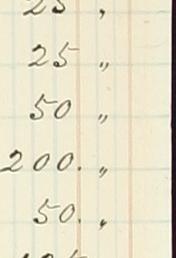 25 "
25 "
50 "
200. "
50. "